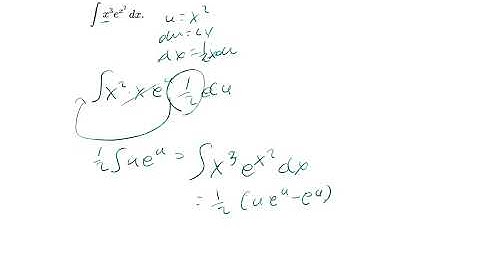 ∫ x³eˣ² dx.
u = x²
du = 2x
dx = ½xdu
∫ x² · x eᵘ ½ du
½ ∫ u eᵘ = ∫ x³ eˣ² dx
= ½ (u eᵘ - eᵘ)